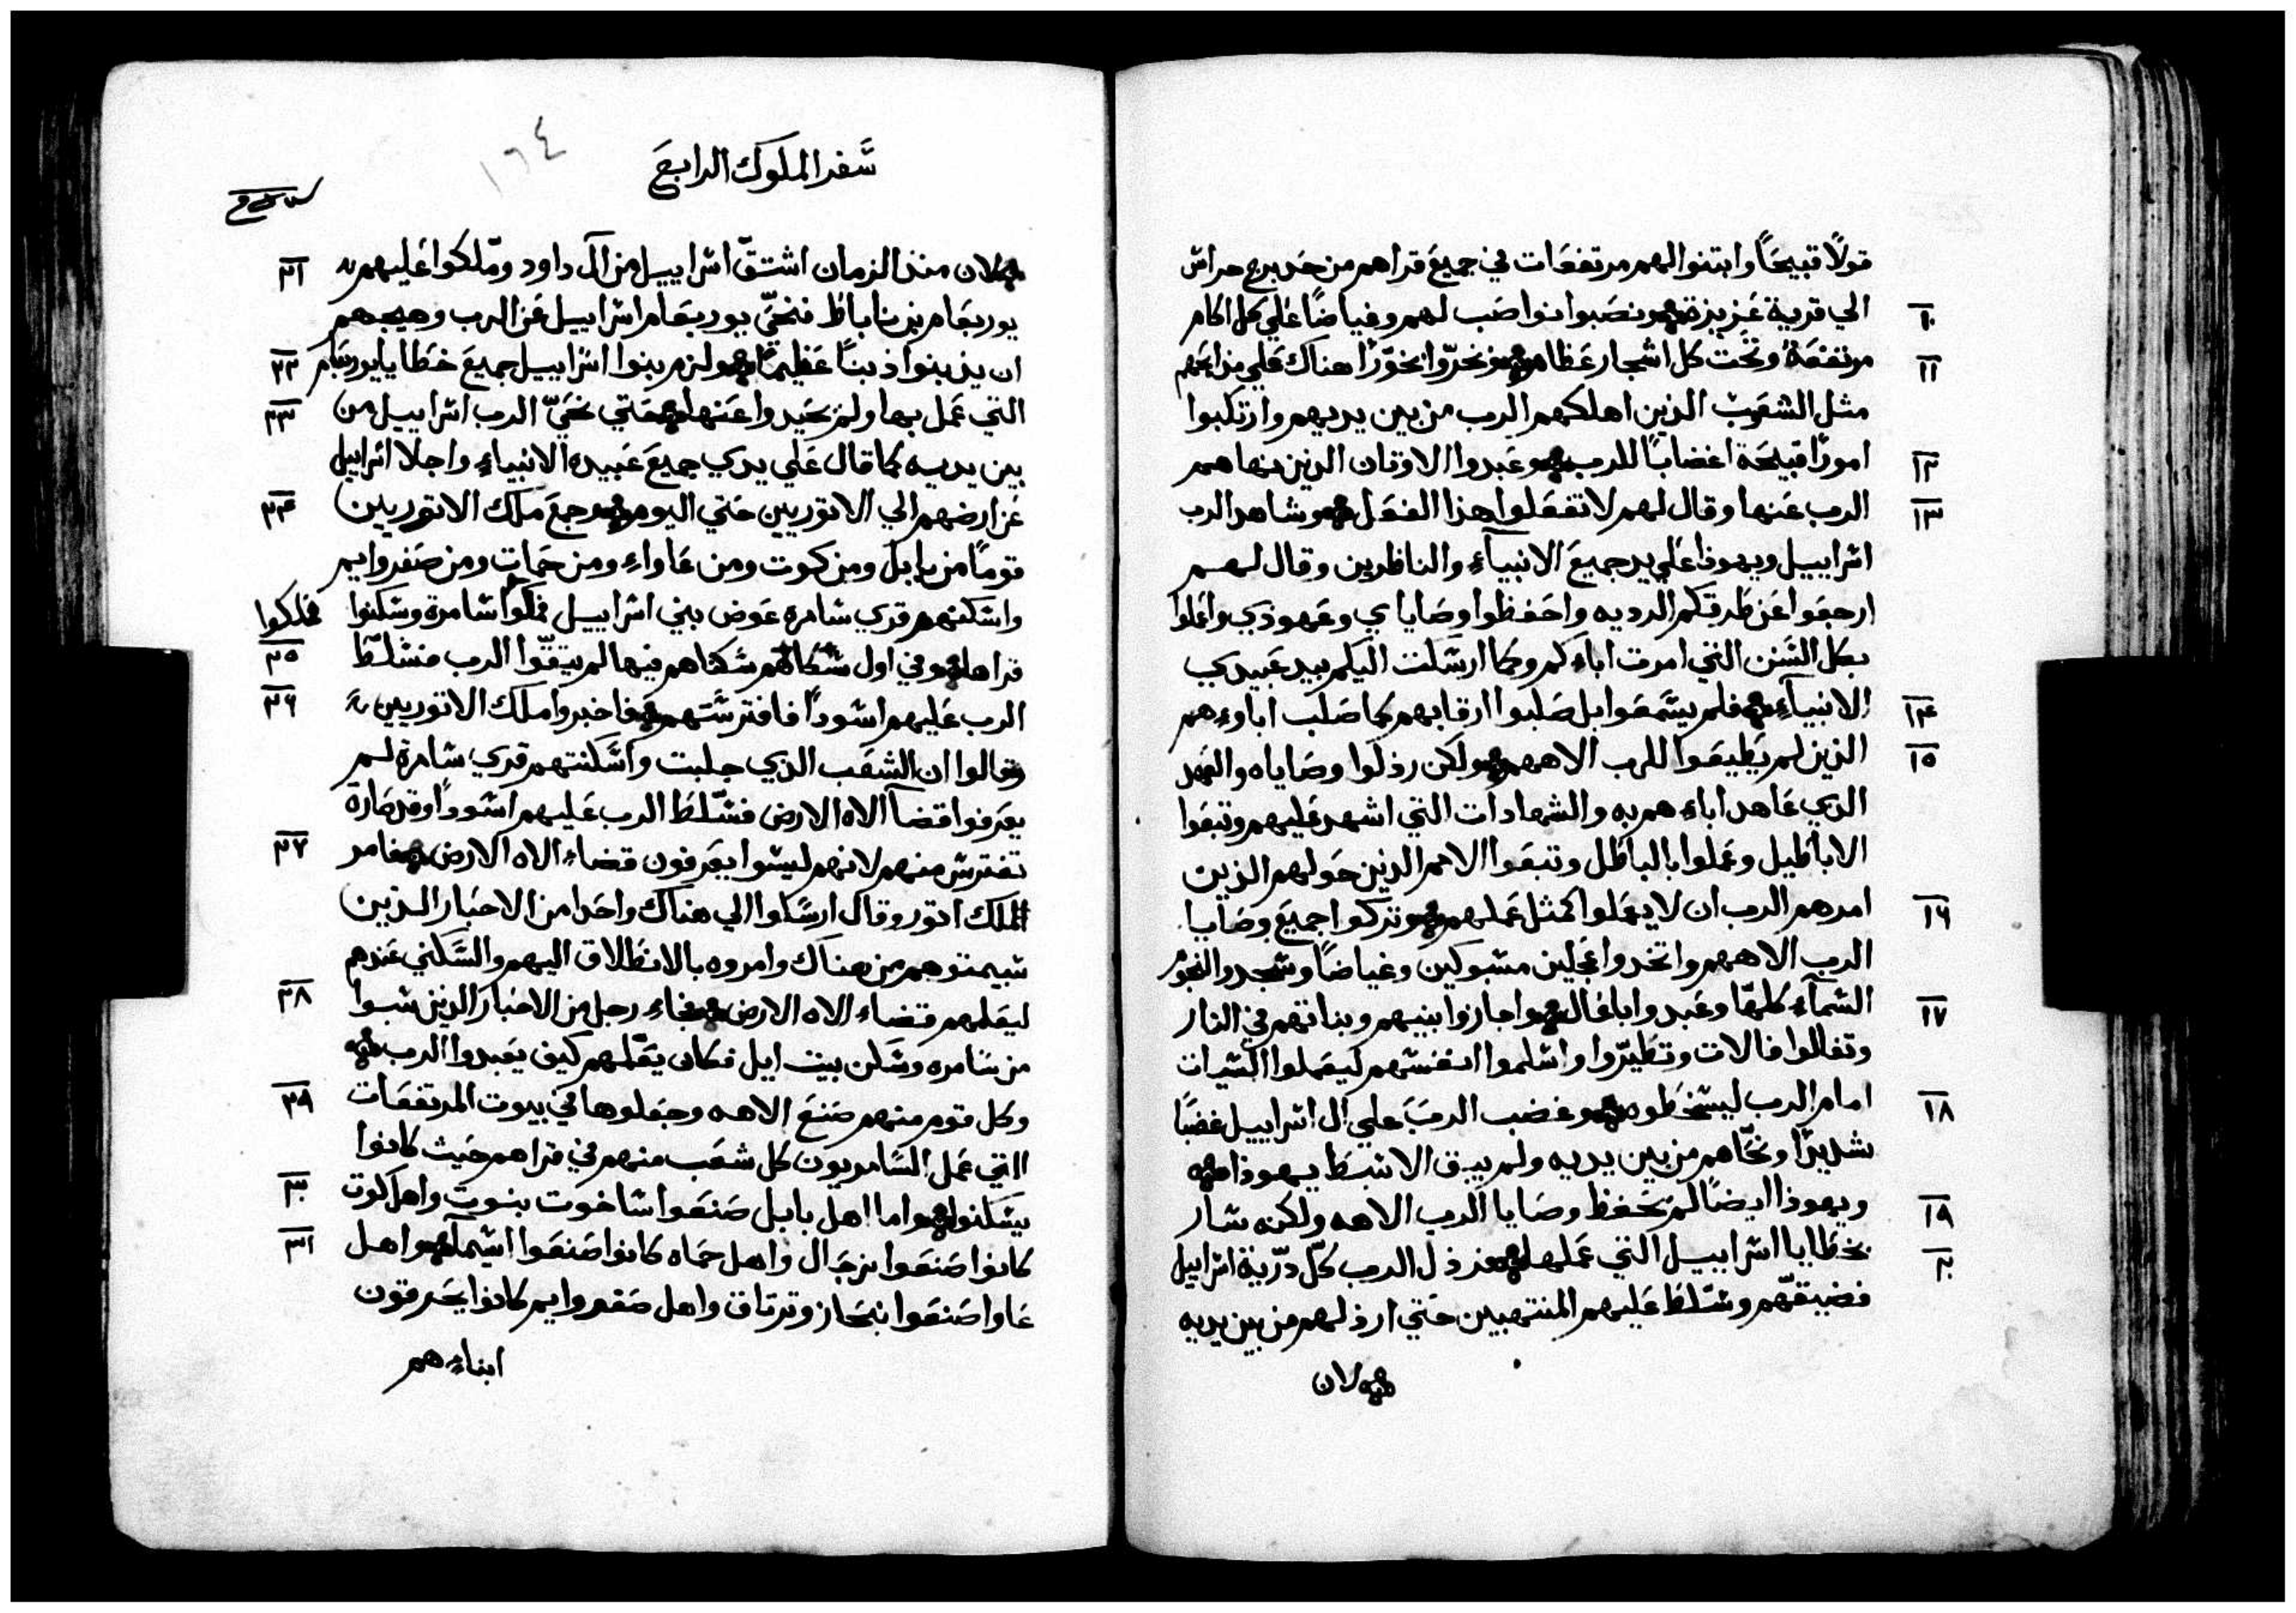 قولًا قبيحًا وابتنوا لهم مرتفعات في جميع قراهم من حد برج حراس
١٠ الي قرية عزيزة ونصبوا نواصب لهم وغياضًا علي كل اكام
١١ مرتفعة وتحت كل اشجار عظام ونخروا بخورًا هناك علي مذابحهم
مثل الشعوب الذين اهلكهم الرب من بين يديهم وارتكبوا
١٢ امورًا قبيحة اغضابًا للرب وعبدوا الاوتان الذين نهاهم
١٣ الرب عنها وقال لهم لا تفعلوا هذا الفعل وشاهد الرب
اسراييل ويهوذا علي يد جميع الانبياء والناظرين وقال لهم
ارجعوا عن طرقكم الرديه واحفظوا وصاياي وعهودي واعملوا
بكل السنن التي امرت اباءكم وكما ارسلت اليكم بيد عبيدي
١٤ الانبياء فلم يسمعوا بل صلبوا ارقابهم كما صلب اباوءهم
١٥ الذين لم يطيعوا للرب الاههم ولكن رذلوا وصاياه والعهد
الذي عاهد اباءهم به والشهادات التي اشهد عليهم وتبعوا
الاباطيل وعملوا بالباطل وتبعوا الامم الذين حولهم الذين
١٦ امرهم الرب ان لا يعملوا كمثل عملهم وتركوا جميع وصايا
الرب الاههم واتخدوا عجلين مسبوكين وغياضًا وسجدوا لنجوم
١٧ السماء كلها وعبدوا باغال واجازوا بنيهم وبناتهم في النار
وتفالوا فالات وتطيروا واسلموا انفسهم ليعملوا السيرات
١٨ امام الرب ليسخطوه وغضب الرب علي ال اسراييل غضبًا
شديدًا ونحاهم من بين يديه ولم يبق الا سبط يهوذا
١٩ ويهوذا ايضًا لم يحفظ وصايا الرب الاهه ولكنه سار
٢٠ بخطايا اسراييل التي عملها فرذل الرب كل ذرية اسراييل
فضيقهم وسلط عليهم المنتهبين حتي ارذلهم من بين يديه
لان
سفر الملوك الرابع
١٦٤
٢١ لان منذ الزمان اشتق اسراييل من آل داود وملكوا عليهم
يوربعام بن ناباط فنحي يوربعام اسراييل عن الرب وهيجهم
٢٢ ان يذنبوا ذنبًا عظيمًا ولزم بنوا اسراييل جميع خطايا يوربعام
٢٣ التي عمل بها ولم يحيدوا عنها حتي نحي الرب اسراييل من
بين يديه كما قال علي يدي جميع عبيده الانبياء واجلا اسراييل
٢٤ عن ارضهم الي الاتوريين حتي اليوم وجمع ملك الاتوريين
قومًا من بابل ومن كوت ومن عاواء ومن حمات ومن صفروايم
واسكنهم قري سامره عوض بني اسراييل فملكوا سامرة وسكنوا فملكوا
٢٥ قراها وفي اول سكناهم فيها لم يتقوا الرب فسلط
٢٦ الرب عليهم اسودًا فافترستهم فاخبروا ملك الاتوريين
وقالوا ان الشعب الذي جلبت واسكنتهم قري سامرة لم
يعرفوا قضا آلاه الارض فسلط الرب عليهم اسودًا وقد صارة
٢٧ تفترس منهم لانهم ليسوا يعرفون قضاء الاه الارض فامر
الملك اتور وقال ارسلوا الي هناك واحدا من الاحبار الذين
سبيمتوهم من هناك وامروه بالانطلاق اليهم والسكني عندهم
٢٨ ليعلمهم قضاء الاه الارض فجاء رجل من الاحبار الذين سبوا
من سامره وسكن بيت ايل فكان يعلمهم كيف يعبدوا الرب
٢٩ وكل قوم منهم صنع الاهه وجعلوها في بيوت المرتفعات
التي عمل السامريون كل شعب منهم في قراهم حيث كانوا
٣٠ يسكنوا واما اهل بابل صنعوا ساخوت بنوت واهل كوت
٣١ كانوا صنعوا نرجال واهل حماه كانوا صنعوا اشيما واهل
عاوا صنعوا نبحاز وترتاق واهل صفروايم كانوا يحرقون
ابناءهم